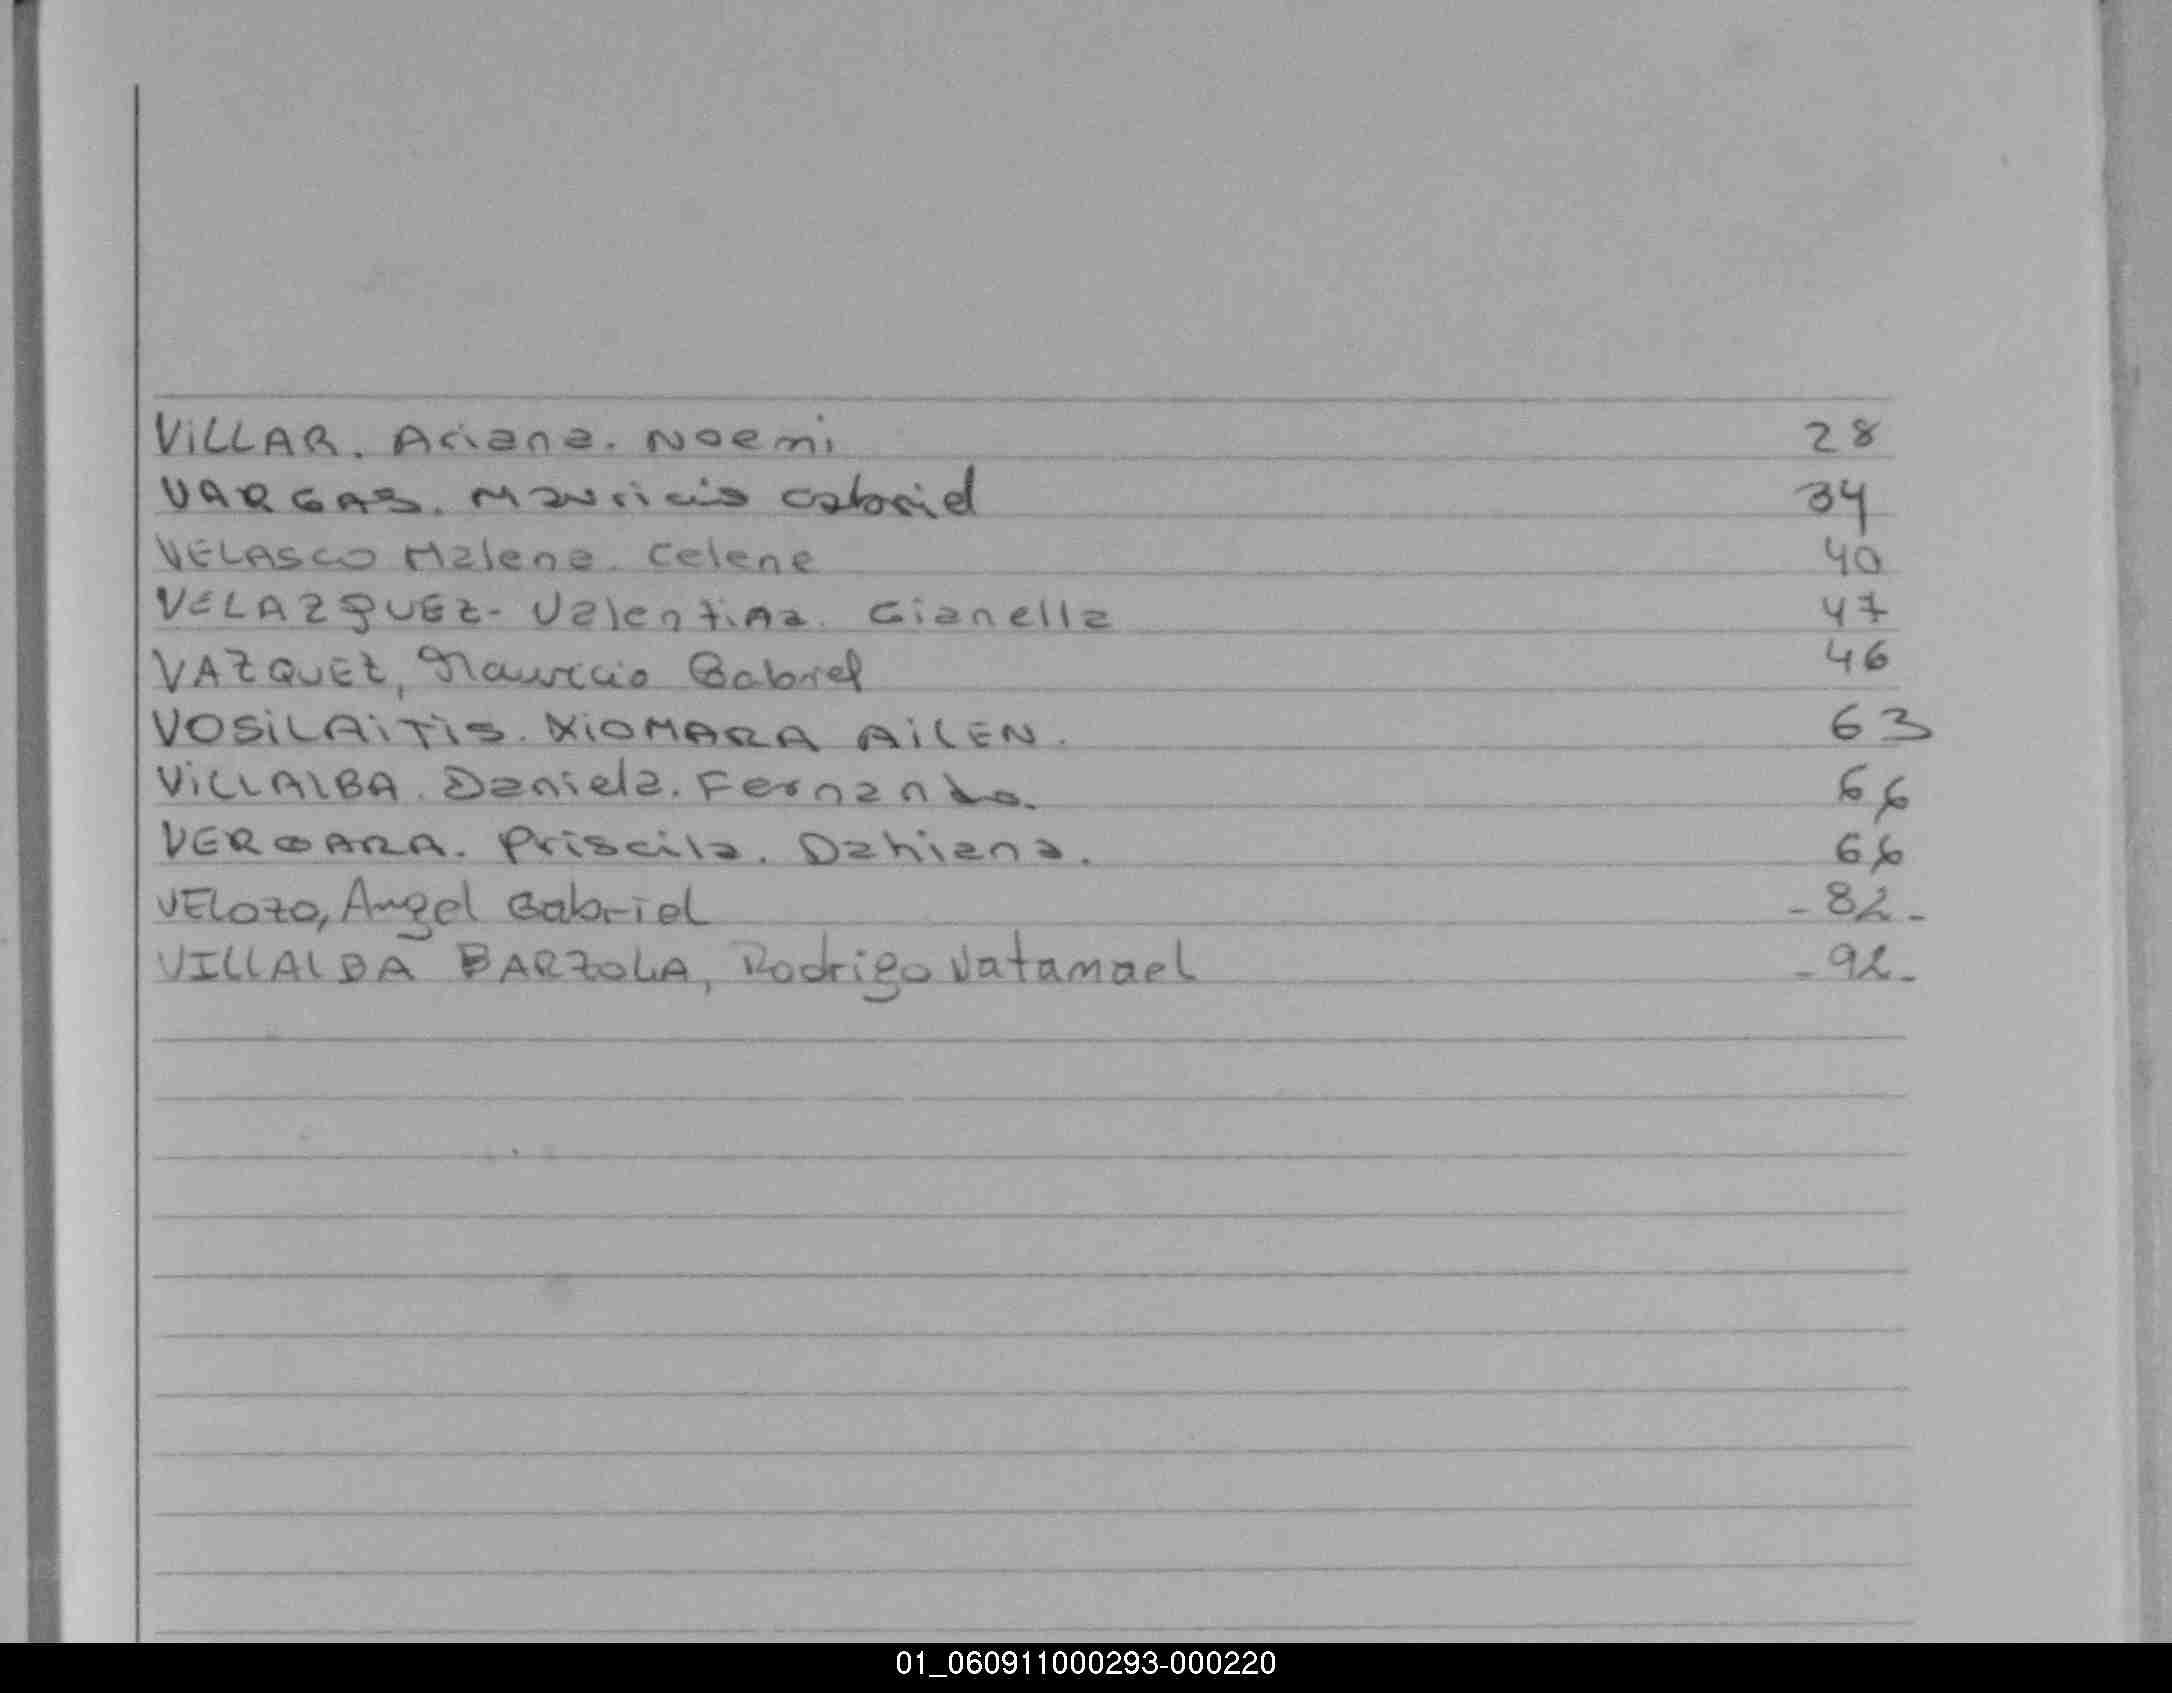 VILLAR. Ariana. Noemi 28
VARGAS. Mauricio Gabriel 34
VELASCO Malena. Celene 40
VELAZQUEZ- Valentina. Gianella 47
VAZQUEZ, Mauricio Gabriel 46
VOSILAITIS. XIOMARA AILEN. 63
VILLALBA. Daniela. Fernanda. 66
VERGARA. Priscila. Dahiana. 66
VELOZO, Angel Gabriel - 82 -
VILLALBA BARZOLA, Rodrigo Natamael - 92 -
01_060911000293-000220